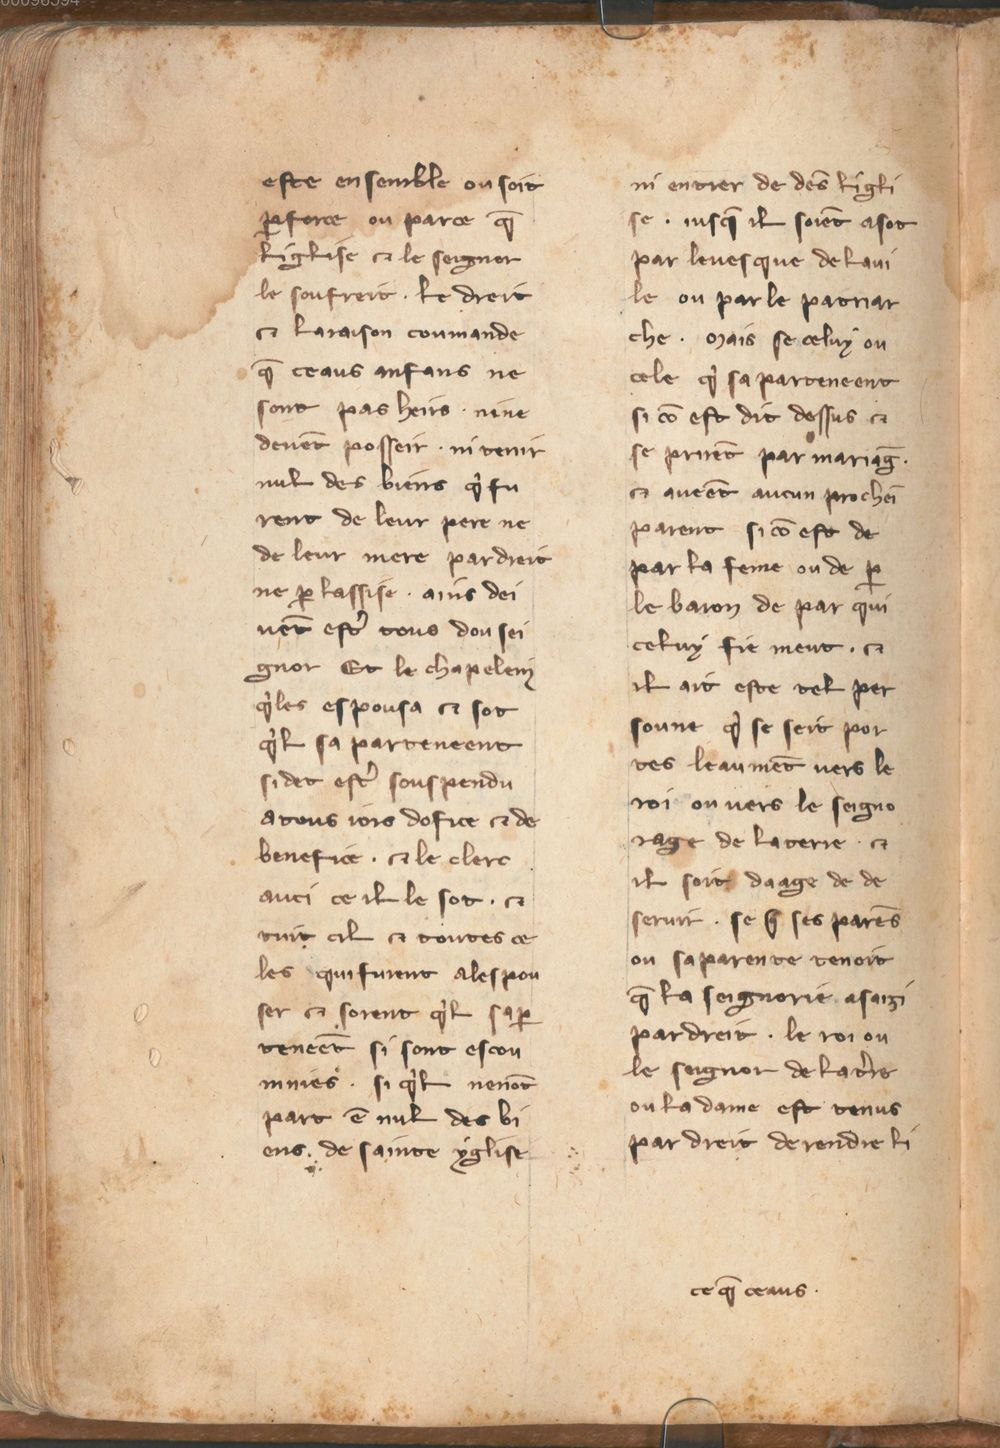 este ensemble ou soit
p̱ force ou parce q̃
liglise ⁊ le seignor
le soufreit . le dreit
⁊ laraison coumande
q̃ ceaus anfans ne
sont pas heirs . nine
deuēt posseir . ni tenir
nul des biens q̓ fu
rent de leur pere ne
de leur mere par dreit
ne ꝑ lassise . ains dei
uēt estr̓ tous dou sei
gnor Et le chapelein
q̓les espousa ⁊ sot
q̓l sa parteneent
si det estr̓ souspendu
atous iors dofice ⁊ de
benefice . ⁊ le clerc
auci ce il le sot . ⁊
tuit cil ⁊ toutes ce
les qui furent alespou
ser ⁊ sorent q̓l sap̱
teneēt si sont escou
mnies . si q̓l nenōt
part ē nul des bi
ens . de sainte yglise
ni entrer de dēs ligli
se . iusq̃ il soiēt asot
par leuesque de laui
le ou par le patriar
che . Mais se celuy ou
cele q̓ sa parteneent
si cō est dit dessus ⁊
se prnēt par mariag̃ .
⁊ aueēt aucun procheī
parent si cō est de
par la feme ou de ꝑ
le baron de par qui
celuy fie meut . ⁊
il ait este tel per
soune q̓ se seit por
tes leaumēt uers le
roi ou uers le seigno
rage de laterre . ⁊
il soit daage de de
seruir . se q̃ ses parēs
ou saparente tenoit
q̃ la seignorie asaizi
par dreit . le roi ou
le seignor de lat̓re
ou la dame est tenus
par dreit de rendre li
ce q̃ ceaus .